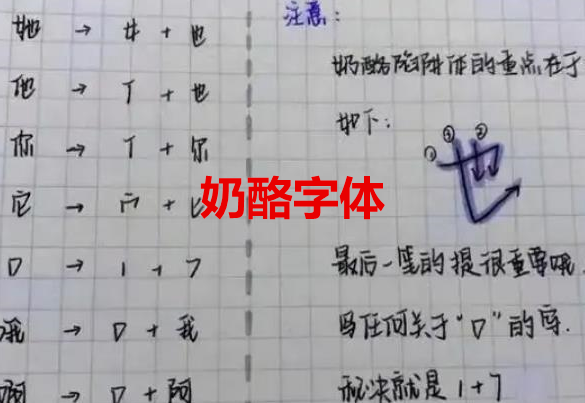 她 → 女 + 也
他 → 亻 + 也
你 → 亻 + 尔
它 → 宀 + 匕
口 → 1 + 7
哦 → 口 + 我
啊 → 口 + 阿
奶酪字体
注意:
奶酪陷阱体的重点在于
如下:
① ③ ②
也
最后一笔的提很重要哦.
写任何关于“口”的字.
秘决就是 1+7